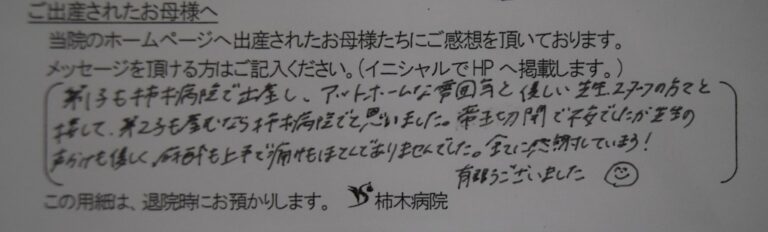 ご出産されたお母様へ
当院のホームページへ出産されたお母様たちにご感想を頂いております。
メッセージを頂ける方はご記入ください。(イニシャルでHPへ掲載します。)
第1子も柿木病院で出産し、アットホームな雰囲気と優しい先生、スタッフの方々と
接して、第2子も産むなら柿木病院でと思いました。帝王切開で不安でしたが先生の
声かけも優しく、麻酔も上手で痛みもほとんどありませんでした。全てに感謝しています!
有難うございました
この用紙は、退院時にお預かりします。 柿木病院